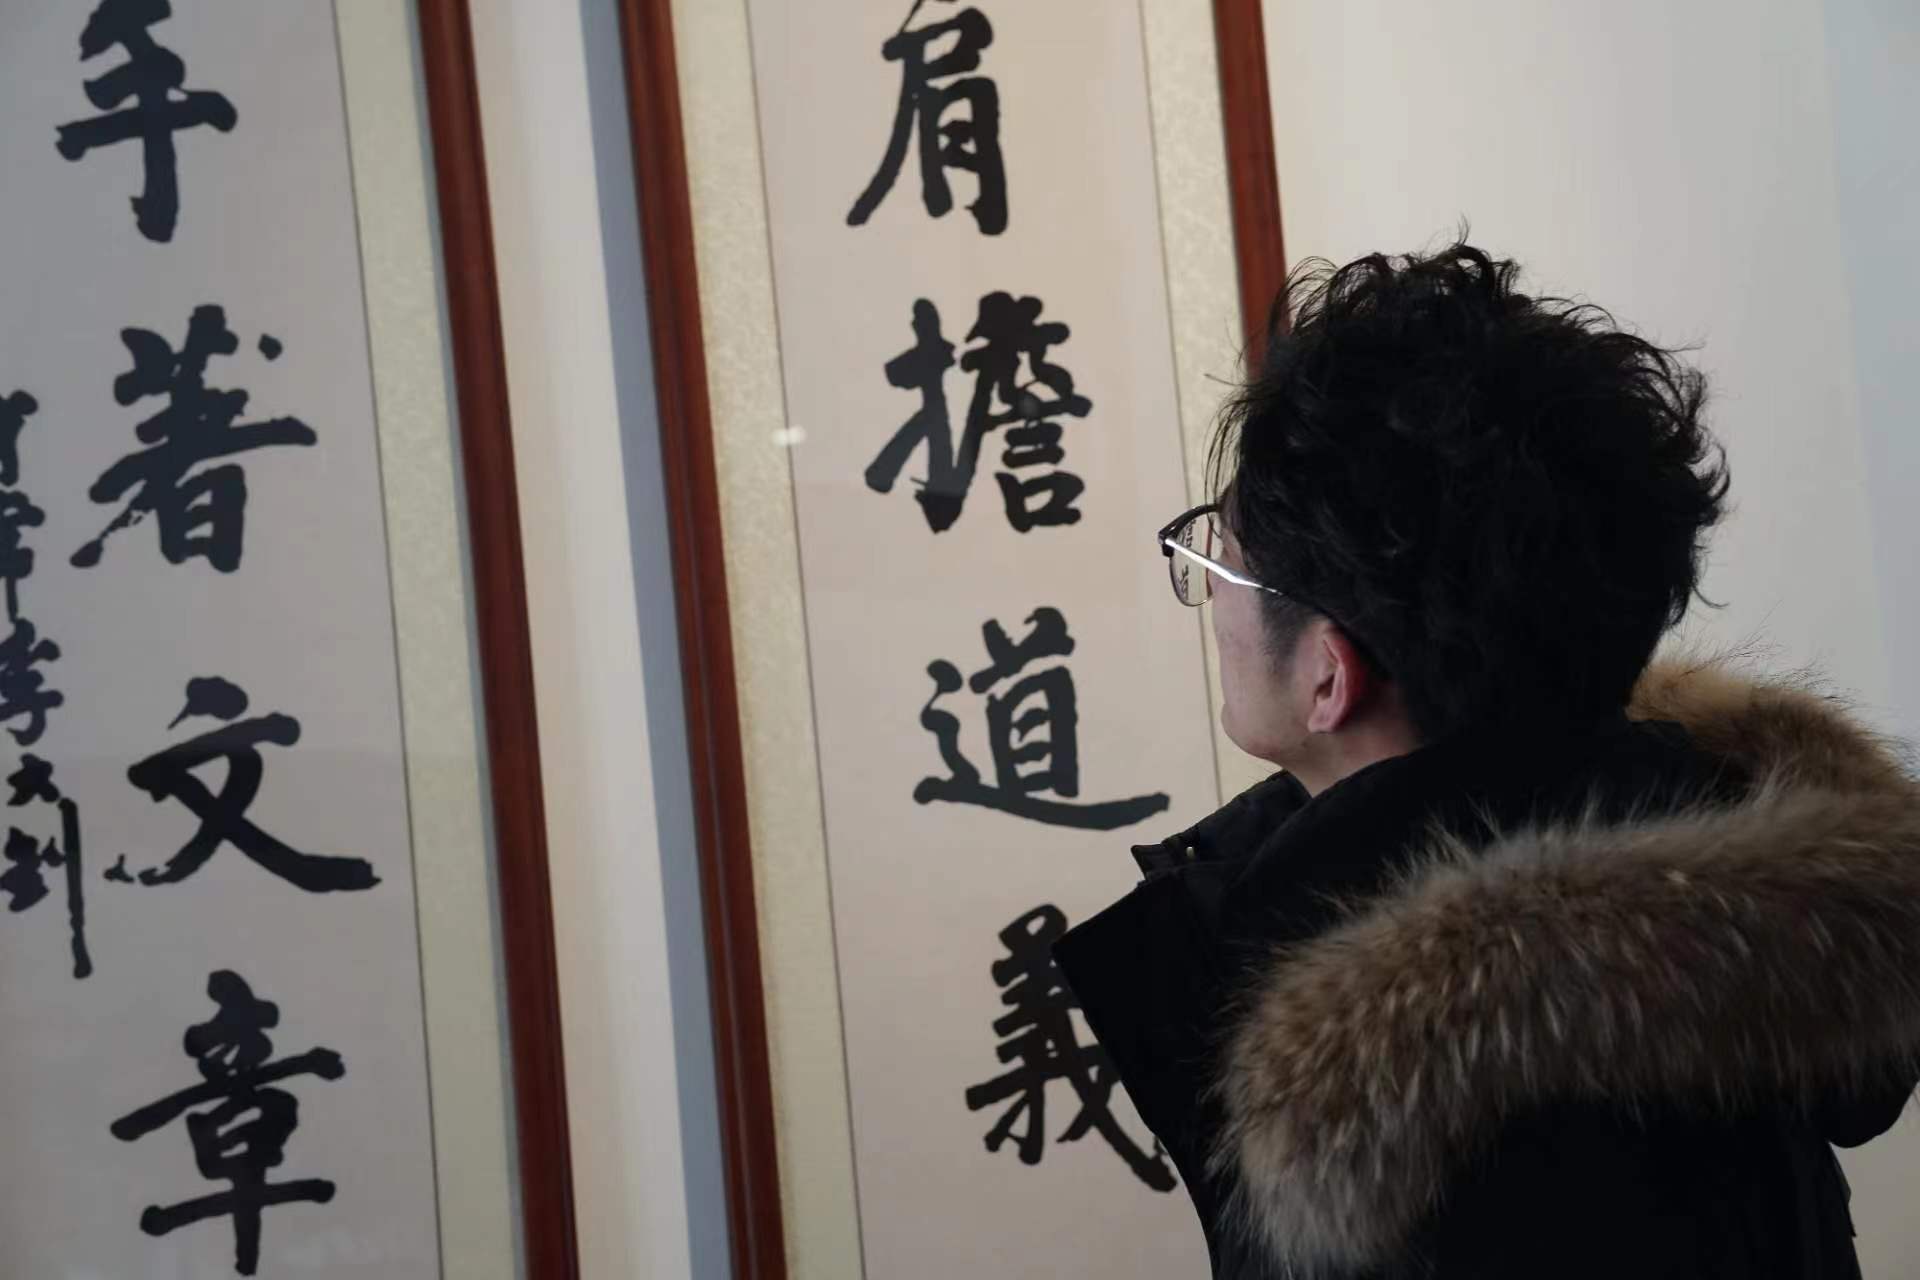 肩擔道義
手著文章
李大釗